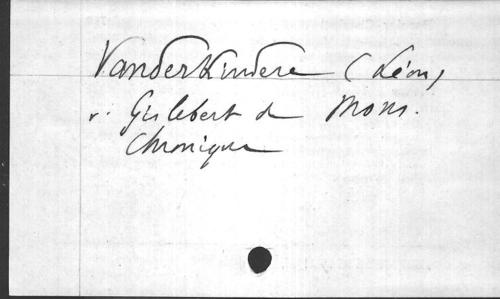 Vanderkindere (Léon)
v. Gislebert de Mons.
Chronique